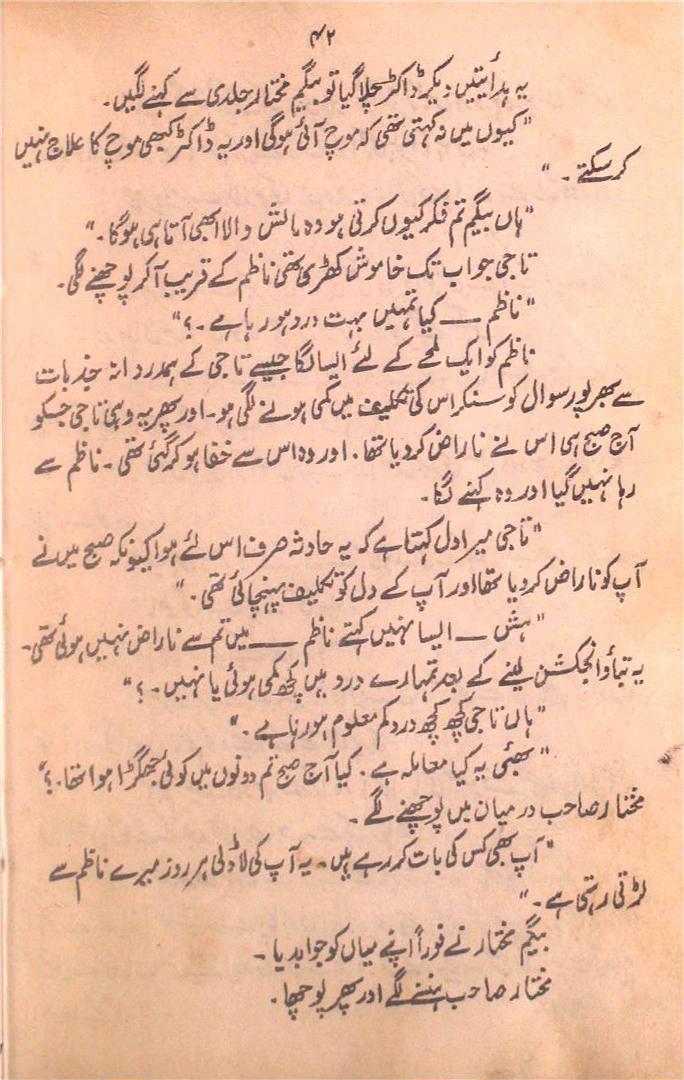 ۴۲
یہ ہدأیتیں دیکر ڈاکٹر چلا گیا تو بیگم مختار جلدی سے کہنے لگیں۔
"کیوں میں نہ کہتی تھی کہ موچ آئی ہوگی اور یہ ڈاکٹر کبھی موچ کا علاج نہیں
کر سکتے۔"
"ہاں بیگم تم فکر کیوں کرتی ہو وہ مالش والا ابھی آتا ہی ہوگا۔"
تاجی جو اب تک خاموش کھڑی تھی ناظم کے قریب آ کر پوچھنے لگی۔
"ناظم ــــ کیا تمہیں بہت درد ہو رہا ہے۔؟"
ناظم کو ایک لمحے کے لئے ایسا لگا جیسے تاجی کے ہمدردانہ جذبات
سے بھرپور سوال کو سنکر اس کی تکلیف میں کمی ہونے لگی ہو۔ اور پھر یہ وہی تاجی جسکو
آج صبح ہی اس نے ناراض کر دیا تھا۔ اور وہ اس سے خفا ہو کر گئی تھی۔ ناظم سے
رہا نہیں گیا اور وہ کہنے لگا۔
"تاجی میرا دل کہتا ہے کہ یہ حادثہ صرف اس لئے ہوا کیونکہ صبح میں نے
آپ کو ناراض کر دیا تھا اور آپ کے دل کو تکلیف پہنچائی تھی۔"
"ہش ــ ایسا نہیں کہتے ناظم ــــ میں تم سے ناراض نہیں ہوئی تھی۔
یہ بتاؤ انجکشن لینے کے بعد تمہارے درد میں کچھ کمی ہوئی یا نہیں۔؟"
"ہاں تاجی کچھ کچھ درد کم معلوم ہو رہا ہے۔"
"بھئی یہ کیا معاملہ ہے۔ کیا آج صبح تم دونوں میں کوئی جھگڑا ہوا تھا۔؟"
مختار صاحب درمیان میں پوچھنے لگے۔
"آپ بھی کس کی بات کر رہے ہیں۔ یہ آپ کی لاڈلی ہر روز میرے ناظم سے
لڑتی رہتی ہے۔"
بیگم مختار نے فوراً اپنے میاں کو جواب دیا۔
مختار صاحب ہنسنے لگے اور پھر پوچھا۔